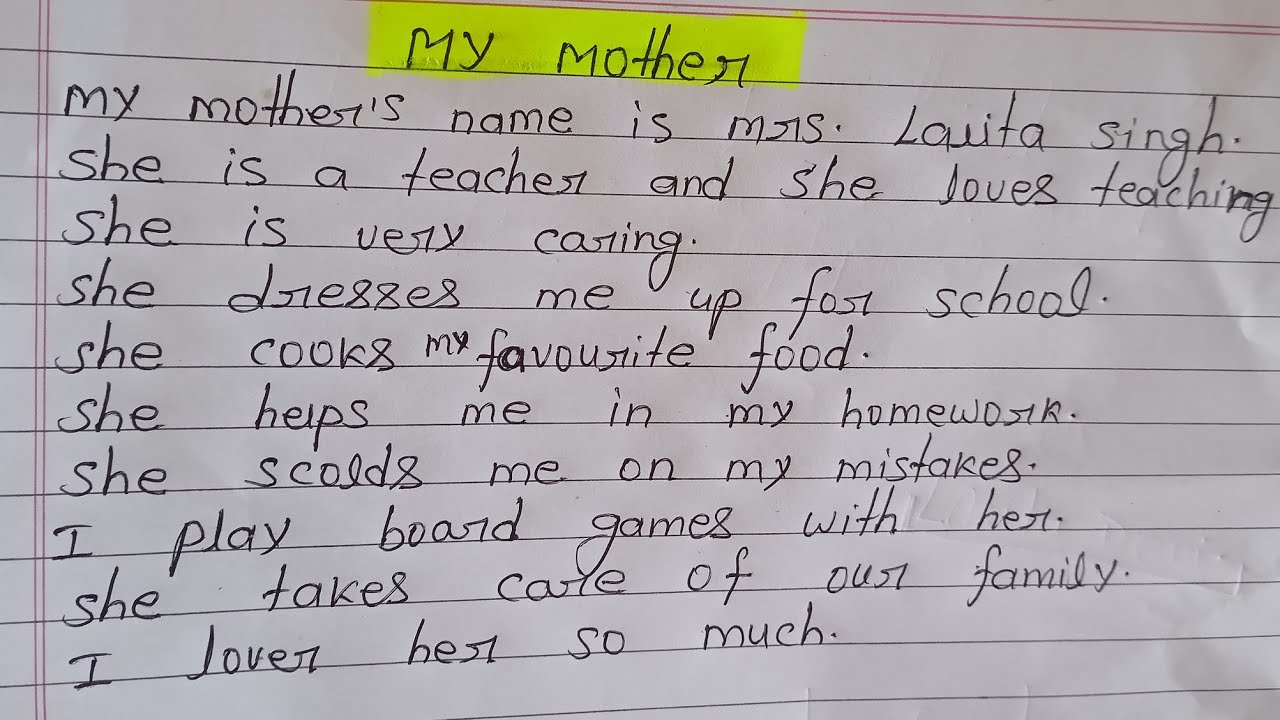 My Mother
My mother's name is mrs. Lavita singh.
She is a teacher and she loves teaching
She is very caring.
She dresses me up for school.
She cooks my favourite food.
She helps me in my homework.
She scolds me on my mistakes.
I play board games with her.
She takes care of our family.
I lover her so much.